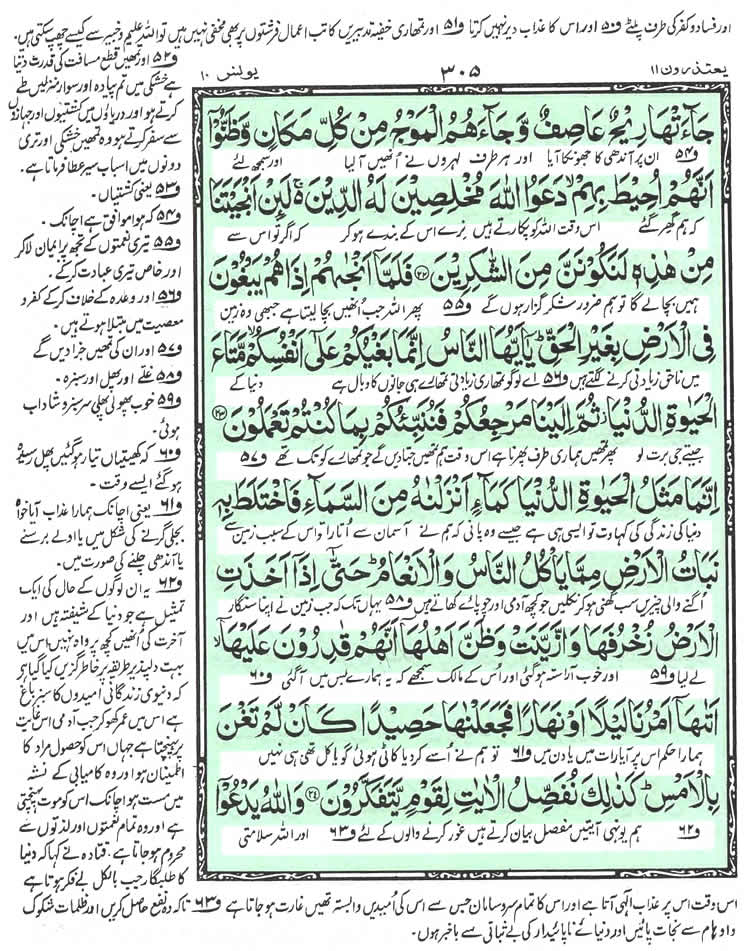 اور فساد و کفر کی طرف پلٹے و۵۰ اور اس کا عذاب دیر نہیں کرتا و۵۱ اور تمھاری خفیہ تدبیریں کاتب اعمال فرشتوں پر بھی مخفی نہیں ہیں تو اللہ علیم و خبیر سے کیسے چھپ سکتی ہیں۔
یعتذرون ۱۱
۳۰۵
یونس ۱۰
جَآءَتْهَا رِیْحٌ عَاصِفٌ وَّ جَآءَهُمُ الْمَوْجُ مِنْ كُلِّ مَكَانٍ وَّ ظَنُّوْۤا
و۵۴ ان پر آندھی کا جھونکا آیا اور ہر طرف لہروں نے انھیں آلیا اور سمجھ لئے
اَنَّهُمْ اُحِیْطَ بِهِمْ ۙ دَعَوُا اللّٰهَ مُخْلِصِیْنَ لَهُ الدِّیْنَ ۚ۬ لَىِٕنْ اَنْجَیْتَنَا
کہ ہم گھر گئے اس وقت اللہ کو پکارتے ہیں نرے اس کے بندے ہو کر کہ اگر تو اس سے
مِنْ هٰذِهٖ لَنَكُوْنَنَّ مِنَ الشّٰكِرِیْنَ ﴿۲۲﴾ فَلَمَّاۤ اَنْجٰىهُمْ اِذَا هُمْ یَبْغُوْنَ
ہمیں بچالے گا تو ہم ضرور شکر گزار ہوں گے و۵۵ پھر اللہ جب انھیں بچا لیتا ہے جبھی وہ زمین
فِی الْاَرْضِ بِغَیْرِ الْحَقِّ ؕ یٰۤاَیُّهَا النَّاسُ اِنَّمَا بَغْیُكُمْ عَلٰۤى اَنْفُسِكُمْ ۙ مَّتَاعَ
میں ناحق زیادتی کرنے لگتے ہیں و۵۶ اے لوگو تمھاری زیادتی تمھارے ہی جانوں کا وبال ہے دنیا کے
الْحَیٰوةِ الدُّنْیَا ؗ ثُمَّ اِلَیْنَا مَرْجِعُكُمْ فَنُنَبِّئُكُمْ بِمَا كُنْتُمْ تَعْمَلُوْنَ ﴿۲۳﴾
جیتے جی برت لو پھر تمھیں ہماری طرف پھرنا ہے اس وقت ہم تمھیں جتا دیں گے جو تمھارے کوتک تھے و۵۷
اِنَّمَا مَثَلُ الْحَیٰوةِ الدُّنْیَا كَمَآءٍ اَنْزَلْنٰهُ مِنَ السَّمَآءِ فَاخْتَلَطَ بِهٖ
دنیا کی زندگی کی کہاوت تو ایسی ہی ہے جیسے وہ پانی کہ ہم نے آسمان سے اتارا تو اس کے سبب زمین سے
نَبَاتُ الْاَرْضِ مِمَّا یَاْكُلُ النَّاسُ وَ الْاَنْعَامُ ؕ حَتّٰۤى اِذَاۤ اَخَذَتِ
اگنے والی چیزیں سب گھنی ہو کر نکلیں جو کچھ آدمی اور چوپائے کھاتے ہیں و۵۸ یہاں تک کہ جب زمین نے اپنا سنگار
الْاَرْضُ زُخْرُفَهَا وَ ازَّیَّنَتْ وَ ظَنَّ اَهْلُهَاۤ اَنَّهُمْ قٰدِرُوْنَ عَلَیْهَاۤ ۙ
لے لیا و۵۹ اور خوب آراستہ ہو گئی اور اس کے مالک سمجھے کہ یہ ہمارے بس میں آگئی و۶۰
اَتٰىهَاۤ اَمْرُنَا لَیْلًا اَوْ نَهَارًا فَجَعَلْنٰهَا حَصِیْدًا كَاَنْ لَّمْ تَغْنَ
ہمارا حکم اس پر آیا رات میں یا دن میں و۶۱ تو ہم نے اسے کردیا کاٹی ہوئی گویا کل تھی ہی نہیں
بِالْاَمْسِ ؕ كَذٰلِكَ نُفَصِّلُ الْاٰیٰتِ لِقَوْمٍ یَّتَفَكَّرُوْنَ ﴿۲۴﴾ وَ اللّٰهُ یَدْعُوْۤا
و۶۲ ہم یونہی آیتیں مفصل بیان کرتے ہیں غور کرنے والوں کے لئے و۶۳ اور اللہ سلامتی
و۵۲ اور تمھیں قطع مسافت کی قدرت دیتا
ہے خشکی میں تم پیادہ اور سوار منزلیں طے
کرتے ہو اور دریاؤں میں کشتیوں اور جہازوں
سے سفر کرتے ہو وہ تمھیں خشکی اور تری
دونوں میں اسباب سیر عطا فرماتا ہے۔
و۵۳ یعنی کشتیاں۔
و۵۴ کہ ہوا موافق ہے اچانک۔
و۵۵ تیری نعمتوں کے تجھ پر ایمان لا کر
اور خاص تیری عبادت کر کے۔
و۵۶ اور وعدہ کے خلاف کر کے کفر و
معصیت میں مبتلا ہوتے ہیں۔
و۵۷ اور ان کی تمھیں جزا دیں گے
و۵۸ غلے اور پھل اور سبزہ۔
و۵۹ خوب پھولی پھلی سرسبز و شاداب
ہوئی۔
و۶۰ کہ کھیتیاں تیار ہو گئیں پھل رسیدہ
ہو گئے ایسے وقت۔
و۶۱ یعنی اچانک ہمارا عذاب آیا خواہ
بجلی گرنے کی شکل میں یا اولے برسنے
یا آندھی چلنے کی صورت میں۔
و۶۲ یہ ان لوگوں کے حال کی ایک
تمثیل ہے جو دنیا کے شیفتہ ہیں اور
آخرت کی انھیں کچھ پرواہ نہیں اس میں
بہت دلپذیر طریقہ پر خاطر گزیں کیا گیا ہے
کہ دنیوی زندگانی امیدوں کا سبز باغ
ہے اس میں عمر کھو کر جب آدمی اس غایت
پر پہنچتا ہے جہاں اس کو حصول مراد کا
اطمینان ہو اور وہ کامیابی کے نشہ
میں مست ہو اچانک اس کو موت پہنچتی
ہے اور وہ تمام نعمتوں اور لذتوں سے
محروم ہو جاتا ہے۔ قتادہ نے کہا کہ دنیا
کا طلبگار جب بالکل بے فکر ہوتا ہے
اس وقت اس پر عذاب الٰہی آتا ہے اور اس کا تمام سروسامان جس سے اس کی امیدیں وابستہ تھیں غارت ہو جاتا ہے و۶۳ تاکہ وہ نفع حاصل کریں اور ظلمات شکوک
و اوہام سے نجات پائیں اور دنیائے ناپائیدار کی بے ثباتی سے باخبر ہوں۔